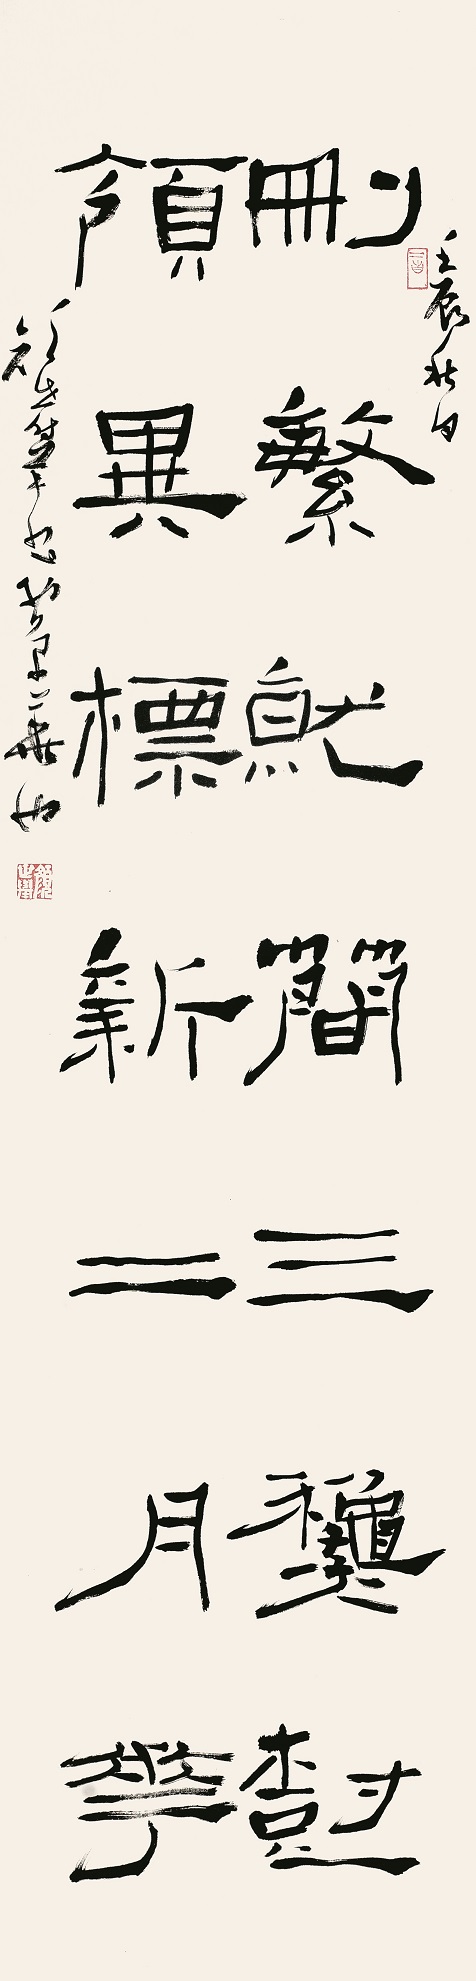 删繁就簡三秋樹
領異標新二月花
壬辰秋日